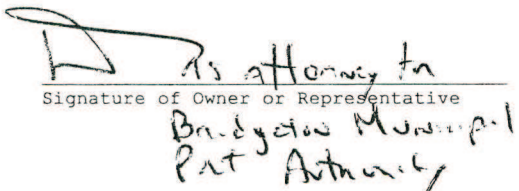 as attorney for
Signature of Owner or Representative
Bridgeton Municipal
Port Authority